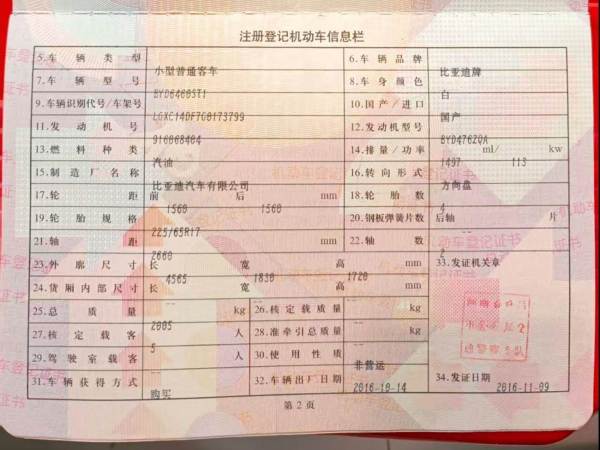 注册登记机动车信息栏
5.车辆类型 小型普通客车 6.车辆品牌 比亚迪牌
7.车辆型号 BYD6460ST1 8.车身颜色 白
9.车辆识别代号/车架号 LGXC14DF7G0173799 10.国产/进口 国产
11.发动机号 916068404 12.发动机型号 BYD476ZQA
13.燃料种类 汽油 14.排量/功率 1497 ml/ 113 kw
15.制造厂名称 比亚迪汽车有限公司 16.转向形式 方向盘
17.轮距 前 1560 后 1560 mm 18.轮胎数 4
19.轮胎规格 225/65R17 20.钢板弹簧片数 后轴 -- 片
21.轴距 2660 mm 22.轴数 2
23.外廓尺寸 长 4565 宽 1830 高 1720 mm 33.发证机关章
24.货厢内部尺寸 长 -- 宽 -- 高 -- mm
25.总质量 2005 kg 26.核定载质量 -- kg
27.核定载客 5 人 28.准牵引总质量 -- kg
29.驾驶室载客 -- 人 30.使用性质 非营运
31.车辆获得方式 购买 32.车辆出厂日期 2016-10-14 34.发证日期 2016-11-09
第2页